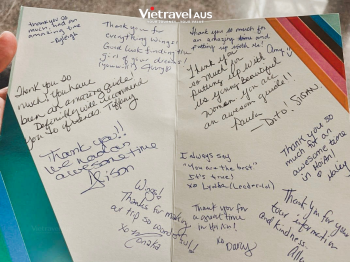 Vietravel AUS
thank you so
much, had an
amazing time
Thank you for
everything Wings!
Good luck finding the
girl of your dreams!
Thank you so much for
an amazing time and
putting up with us!
Thank you
so much for
putting up with
us young beautiful
women. You are
an awesome guide!!
Paula
Ditto! SUSAN
Thank you so
much! You have
been an amazing guide!
Definitely will recommend
you to friends Tiffany
Thank you!!
We had an
awesome time
Alison
I always say
"You are the best"
It's true!
xo
Wings!
Thanks for making
our trip so wonderful!
xo
Thank you
for a great time
in
xo Darcy
Thank you so
much for an
awesome time
Thank you for your
tour information
and kindness.